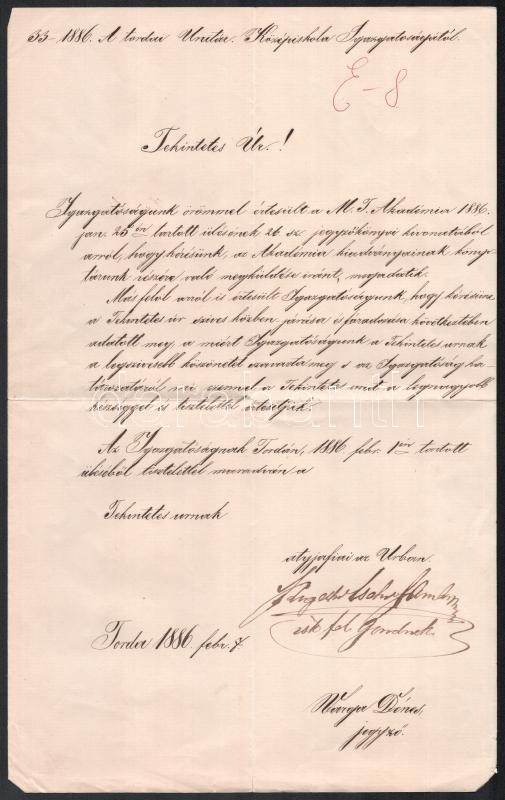 33-1886. A tordai Unitár. Középiskola Igazgatóságától.
E-8
Tekintetes Úr!
Igazgatóságunk örömmel értesült a M. T. Akadémia 1886.
jan. 25én tartott ülésének 26. sz. jegyzőkönyvi kivonatából
arról, hogy kérésünk, az Akadémia kiadványainak könyv-
tárunk részére való megküldése iránt, megadatik.
Más felől arról is értesült Igazgatóságunk, hogy kérésünk
a Tekintetes úr szives közben járása és fáradozása következtében
adatott meg, a miért Igazgatóságunk a Tekintetes urnak
a legszivesebb köszönetét szavazta meg s az Igazgatóság ha-
tározatáról mi ezennel a Tekintetes urat a legnagyobb
készséggel és tisztelettel értesitjük.
Az Igazgatóságnak Tordán, 1886. febr. 1én tartott
üléséből tisztelettel maradván a
Tekintetes urnak
atyjafiai az Urban.
isk. fel. Gondnok.
Torda 1886. febr. 7.
Varga Dénes,
jegyző.
darabanth